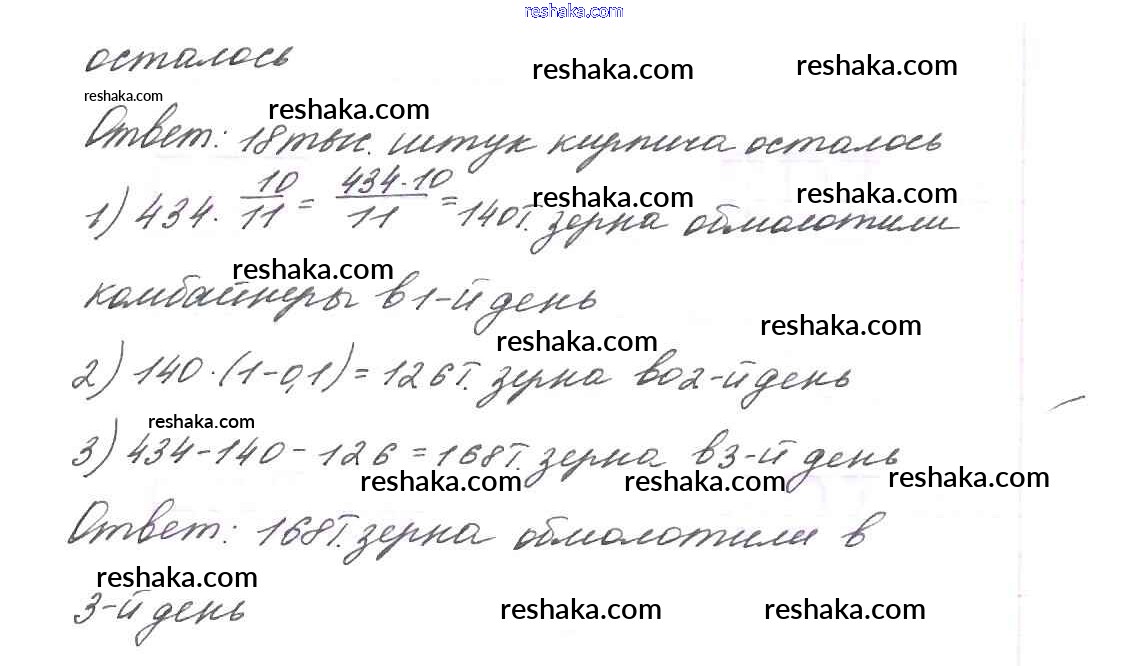 reshaka.com
осталось
reshaka.com reshaka.com
reshaka.com reshaka.com
Ответ: 18 тыс. штук кирпича осталось
1) 434 · 10/11 = 434·10/11 = 140 т. зерна обмолотили
reshaka.com reshaka.com
reshaka.com
комбайнеры в 1-й день
reshaka.com reshaka.com
2) 140 · (1-0,1) = 126 т. зерна во 2-й день
reshaka.com
3) 434-140-126 = 168 т. зерна в 3-й день
reshaka.com reshaka.com reshaka.com
Ответ: 168 т. зерна обмолотили в
reshaka.com
3-й день
reshaka.com reshaka.com